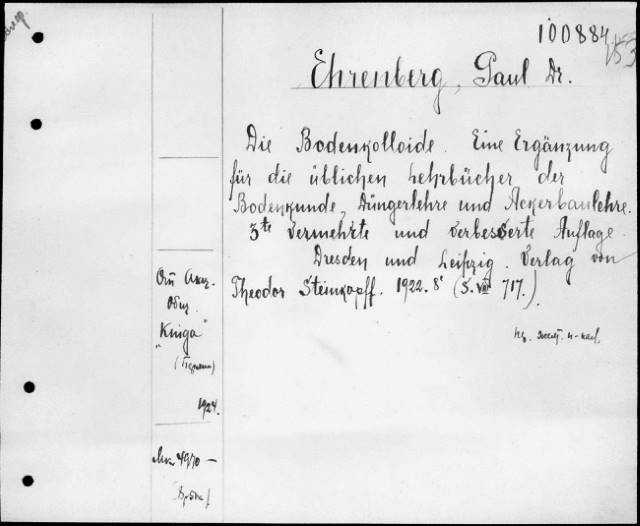 100884
153
Ehrenberg, Paul Dr.
Die Bodenkolloide. Eine Ergänzung
für die üblichen Lehrbücher der
Bodenkunde, Düngerlehre und Ackerbaulehre.
3te vermehrte und verbesserte Auflage
Dresden und Leipzig. Verlag von
Theodor Steinkopff. 1922. 8° (S. VIII 717.)
От Акц.
Общ.
"Kniga"
1924.
4970 —